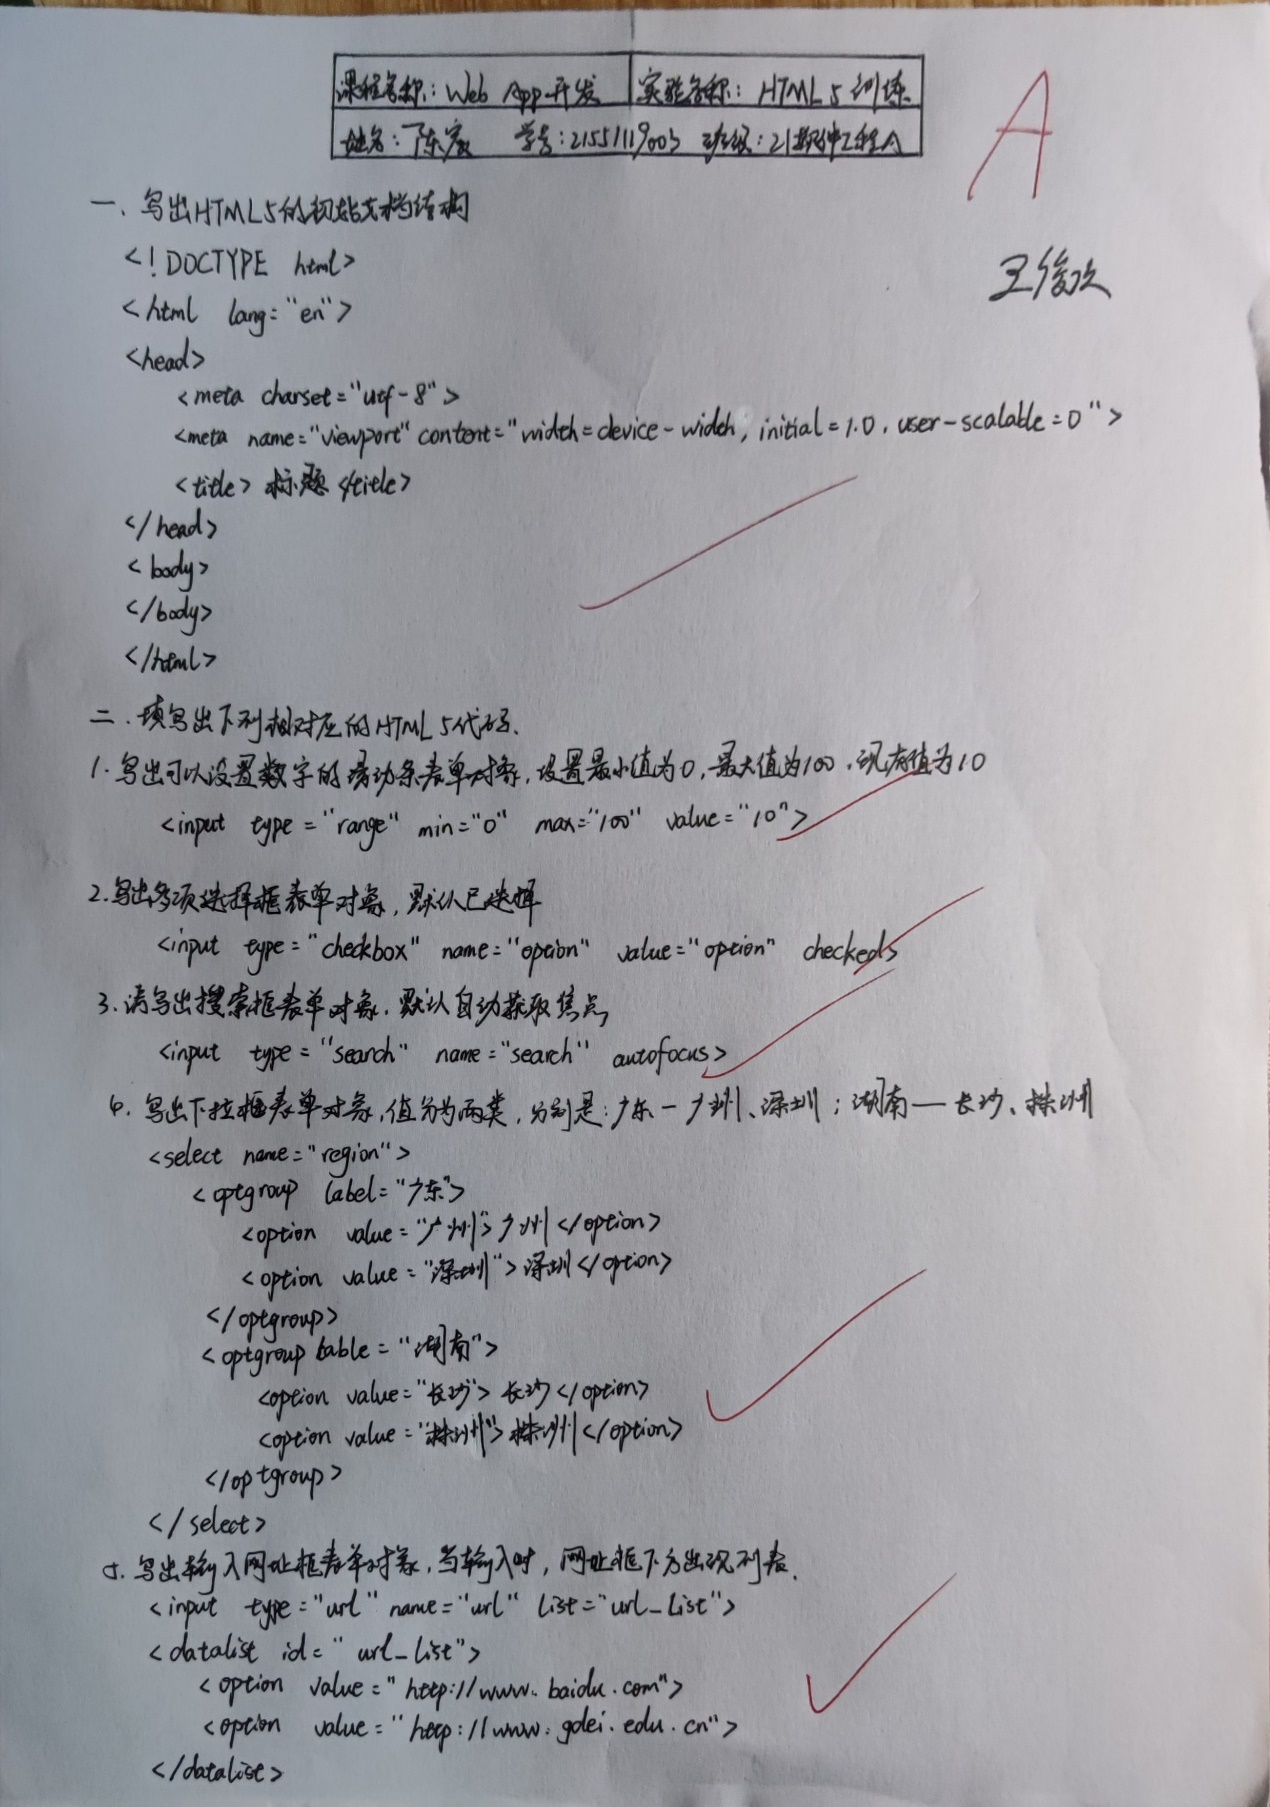 课程名称：Web App开发 实验名称：HTML5训练
姓名：陈家 学号：21551119003 班级：21软件工程A
A
王俊次
一、写出HTML5的初始文档结构
<!DOCTYPE html>
<html lang="en">
<head>
<meta charset="utf-8">
<meta name="viewport" content="width=device-width, initial=1.0, user-scalable=0">
<title>标题</title>
</head>
<body>
</body>
</html>
二、填写出下列相对应的HTML5代码.
1.写出可以设置数字的滑动条表单对象，设置最小值为0，最大值为100，现有值为10
<input type="range" min="0" max="100" value="10">
2.写出多项选择框表单对象，默认已选择
<input type="checkbox" name="option" value="option" checked>
3.请写出搜索框表单对象，默认自动获取焦点
<input type="search" name="search" autofocus>
4.写出下拉框表单对象，值分为两类，分别是：广东—广州、深圳；湖南—长沙、株洲
<select name="region">
<optgroup label="广东">
<option value="广州">广州</option>
<option value="深圳">深圳</option>
</optgroup>
<optgroup lable="湖南">
<option value="长沙">长沙</option>
<option value="株洲">株洲</option>
</optgroup>
</select>
5.写出输入网址框表单对象，当输入时，网址框下方出现列表.
<input type="url" name="url" list="url_list">
<datalist id="url_list">
<option value="http://www.baidu.com">
<option value="http://www.gdei.edu.cn">
</datalist>